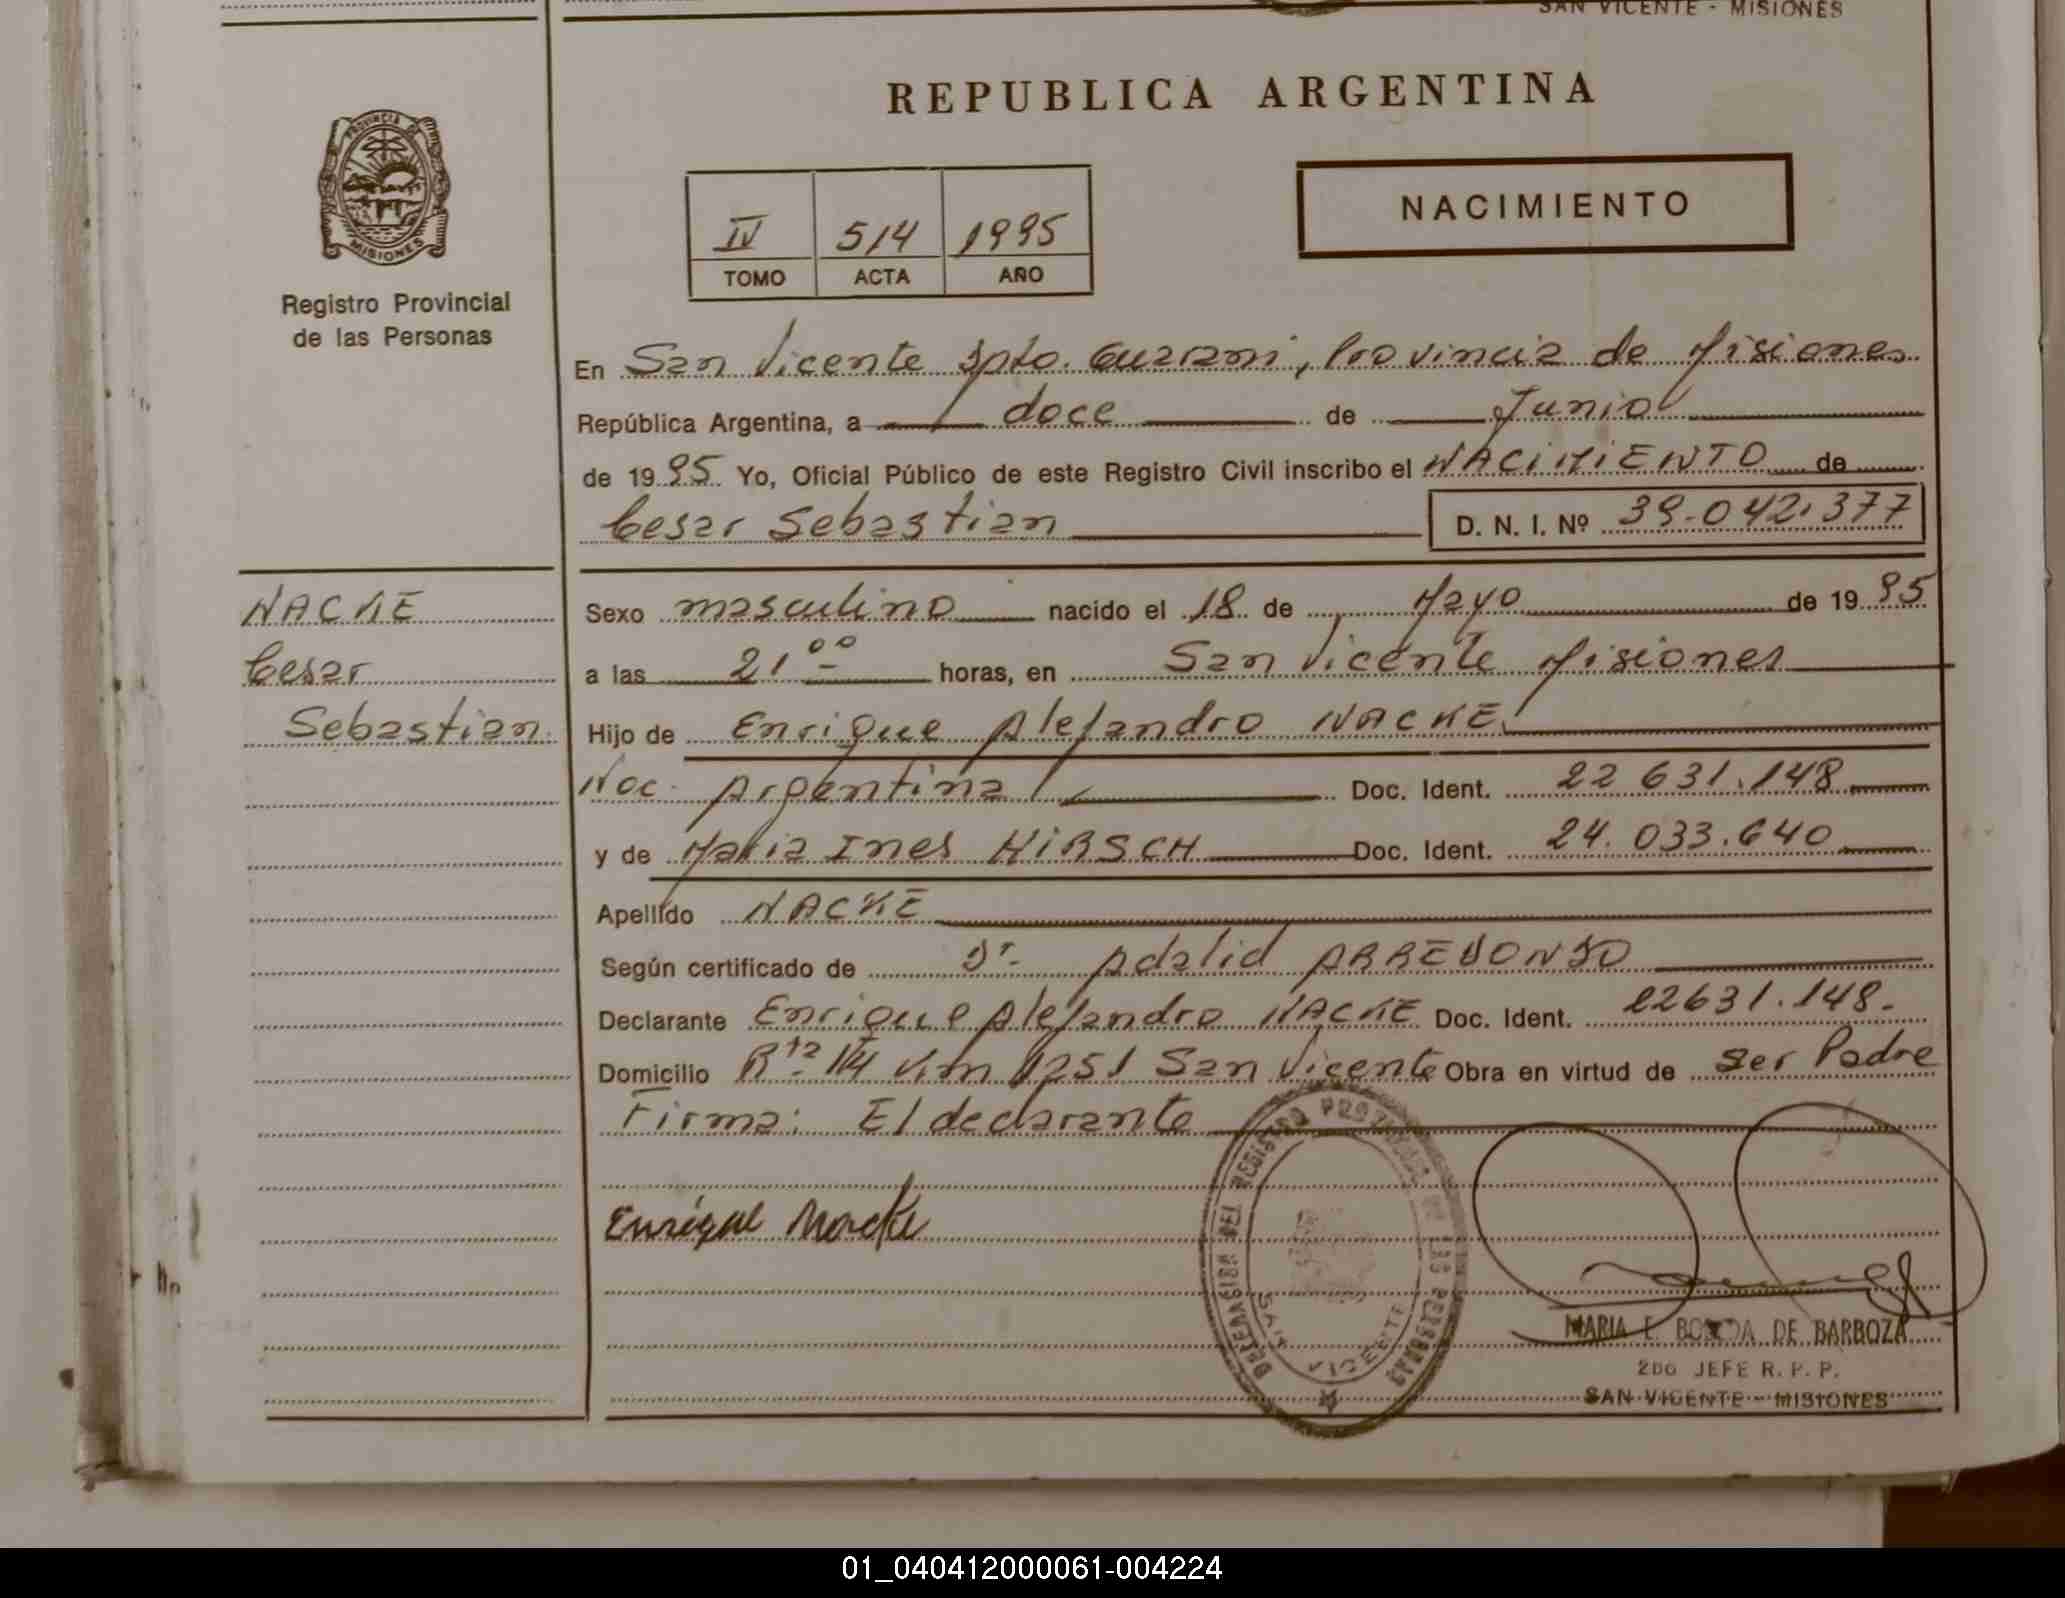 SAN VICENTE - MISIONES
REPUBLICA ARGENTINA
PROVINCIA DE
MISIONES
Registro Provincial
de las Personas
IV 514 1995
TOMO ACTA AÑO
NACIMIENTO
En San Vicente Dpto. Guarani, Provincia de Misiones
República Argentina, a doce de Junio
de 1995 Yo, Oficial Público de este Registro Civil inscribo el NACIMIENTO de
Cesar Sebastian D. N. I. Nº 39.042.377
NACKE
Cesar
Sebastian.
Sexo masculino nacido el 18 de Mayo de 1995
a las 21 00 horas, en San Vicente Misiones
Hijo de Enrique Alejandro NACKE
Nac. Argentina Doc. Ident. 22 631.148
y de Maria Ines HIRSCH Doc. Ident. 24.033.640
Apellido NACKE
Según certificado de Dr. Adalid ARREDONDO
Declarante Enrique Alejandro NACKE Doc. Ident. 22631.148.
Domicilio Rta 14 Km 1251 San Vicente Obra en virtud de Ser Padre
Firma: El declarante
Enrique Nacke
DELEGACION DEL REGISTRO PROVINCIAL DE LAS PERSONAS
SAN VICENTE
MARIA E. DE BARBOZA
2DO JEFE R. P. P.
SAN VICENTE - MISIONES
01_040412000061-004224